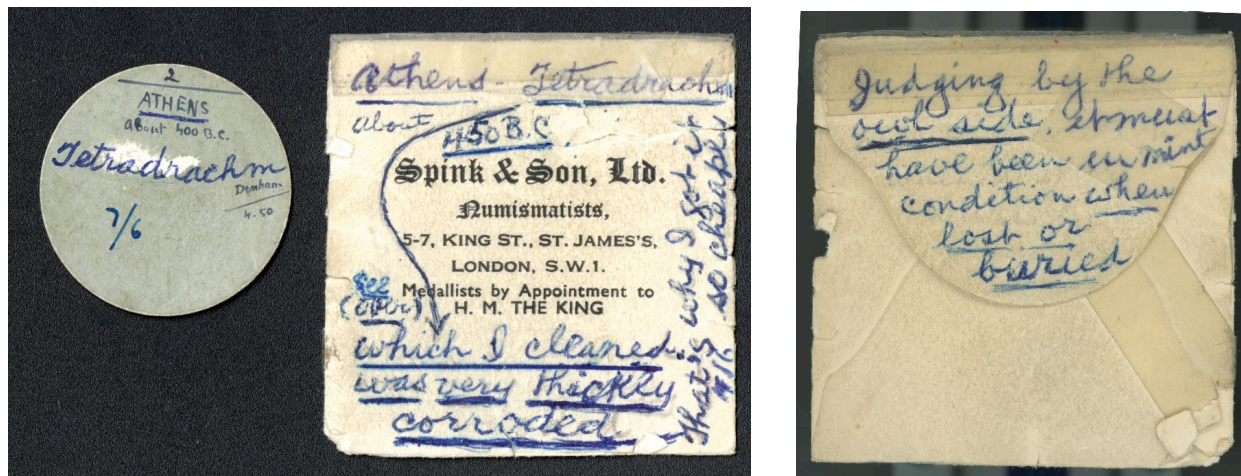 2
ATHENS
About 400 B.C.
Tetradrachm
Denham
4.50
7/6
Athens - Tetradrachm
about 450 B.C.
Spink & Son, Ltd.
Numismatists,
5-7, KING ST., ST. JAMES'S,
LONDON, S.W.1.
Medallists by Appointment to
H. M. THE KING
see
(over)
which I cleaned.
was very thickly
corroded
That is why I got it
so cheaply
7/6
Judging by the
owl side, it must
have been in mint
condition when
lost or
buried